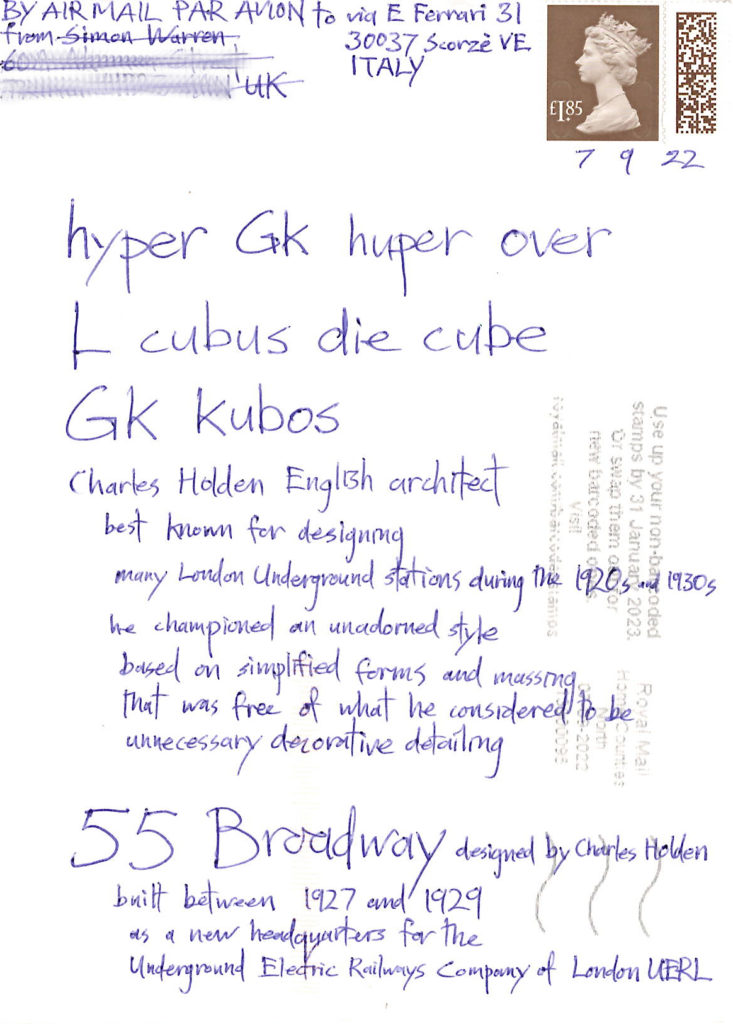 BY AIR MAIL PAR AVION to via E Ferrari 31
from Simon Warren, 30037 Scorzè VE
ITALY
UK
£1.85
7 9 22
hyper Gk huper over
L cubus die cube
GK kubos
Charles Holden English architect
best known for designing
many London Underground stations during the 1920s and 1930s
he championed an unadorned style
based on simplified forms and massing
that was free of what he considered to be
unnecessary decorative detailing
Use up your non-barcoded
stamps by 31 January 2023.
Or swap them out for
new barcoded ones
Visit
Royal Mail
Home Counties
North
55 Broadway designed by Charles Holden
built between 1927 and 1929
as a new headquarters for the
Underground Electric Railways Company of London UERL